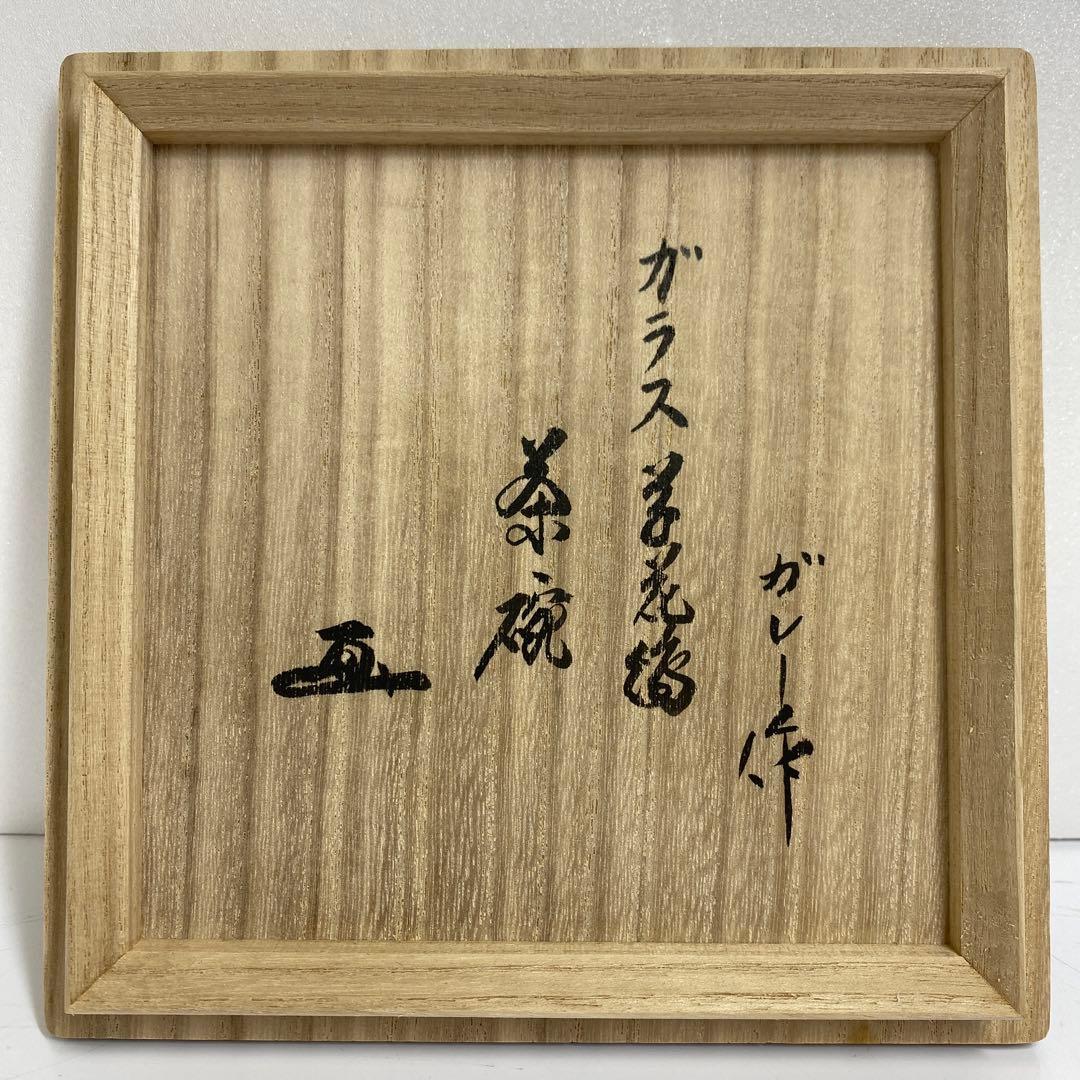 ガレー作
ガラス草花
茶碗